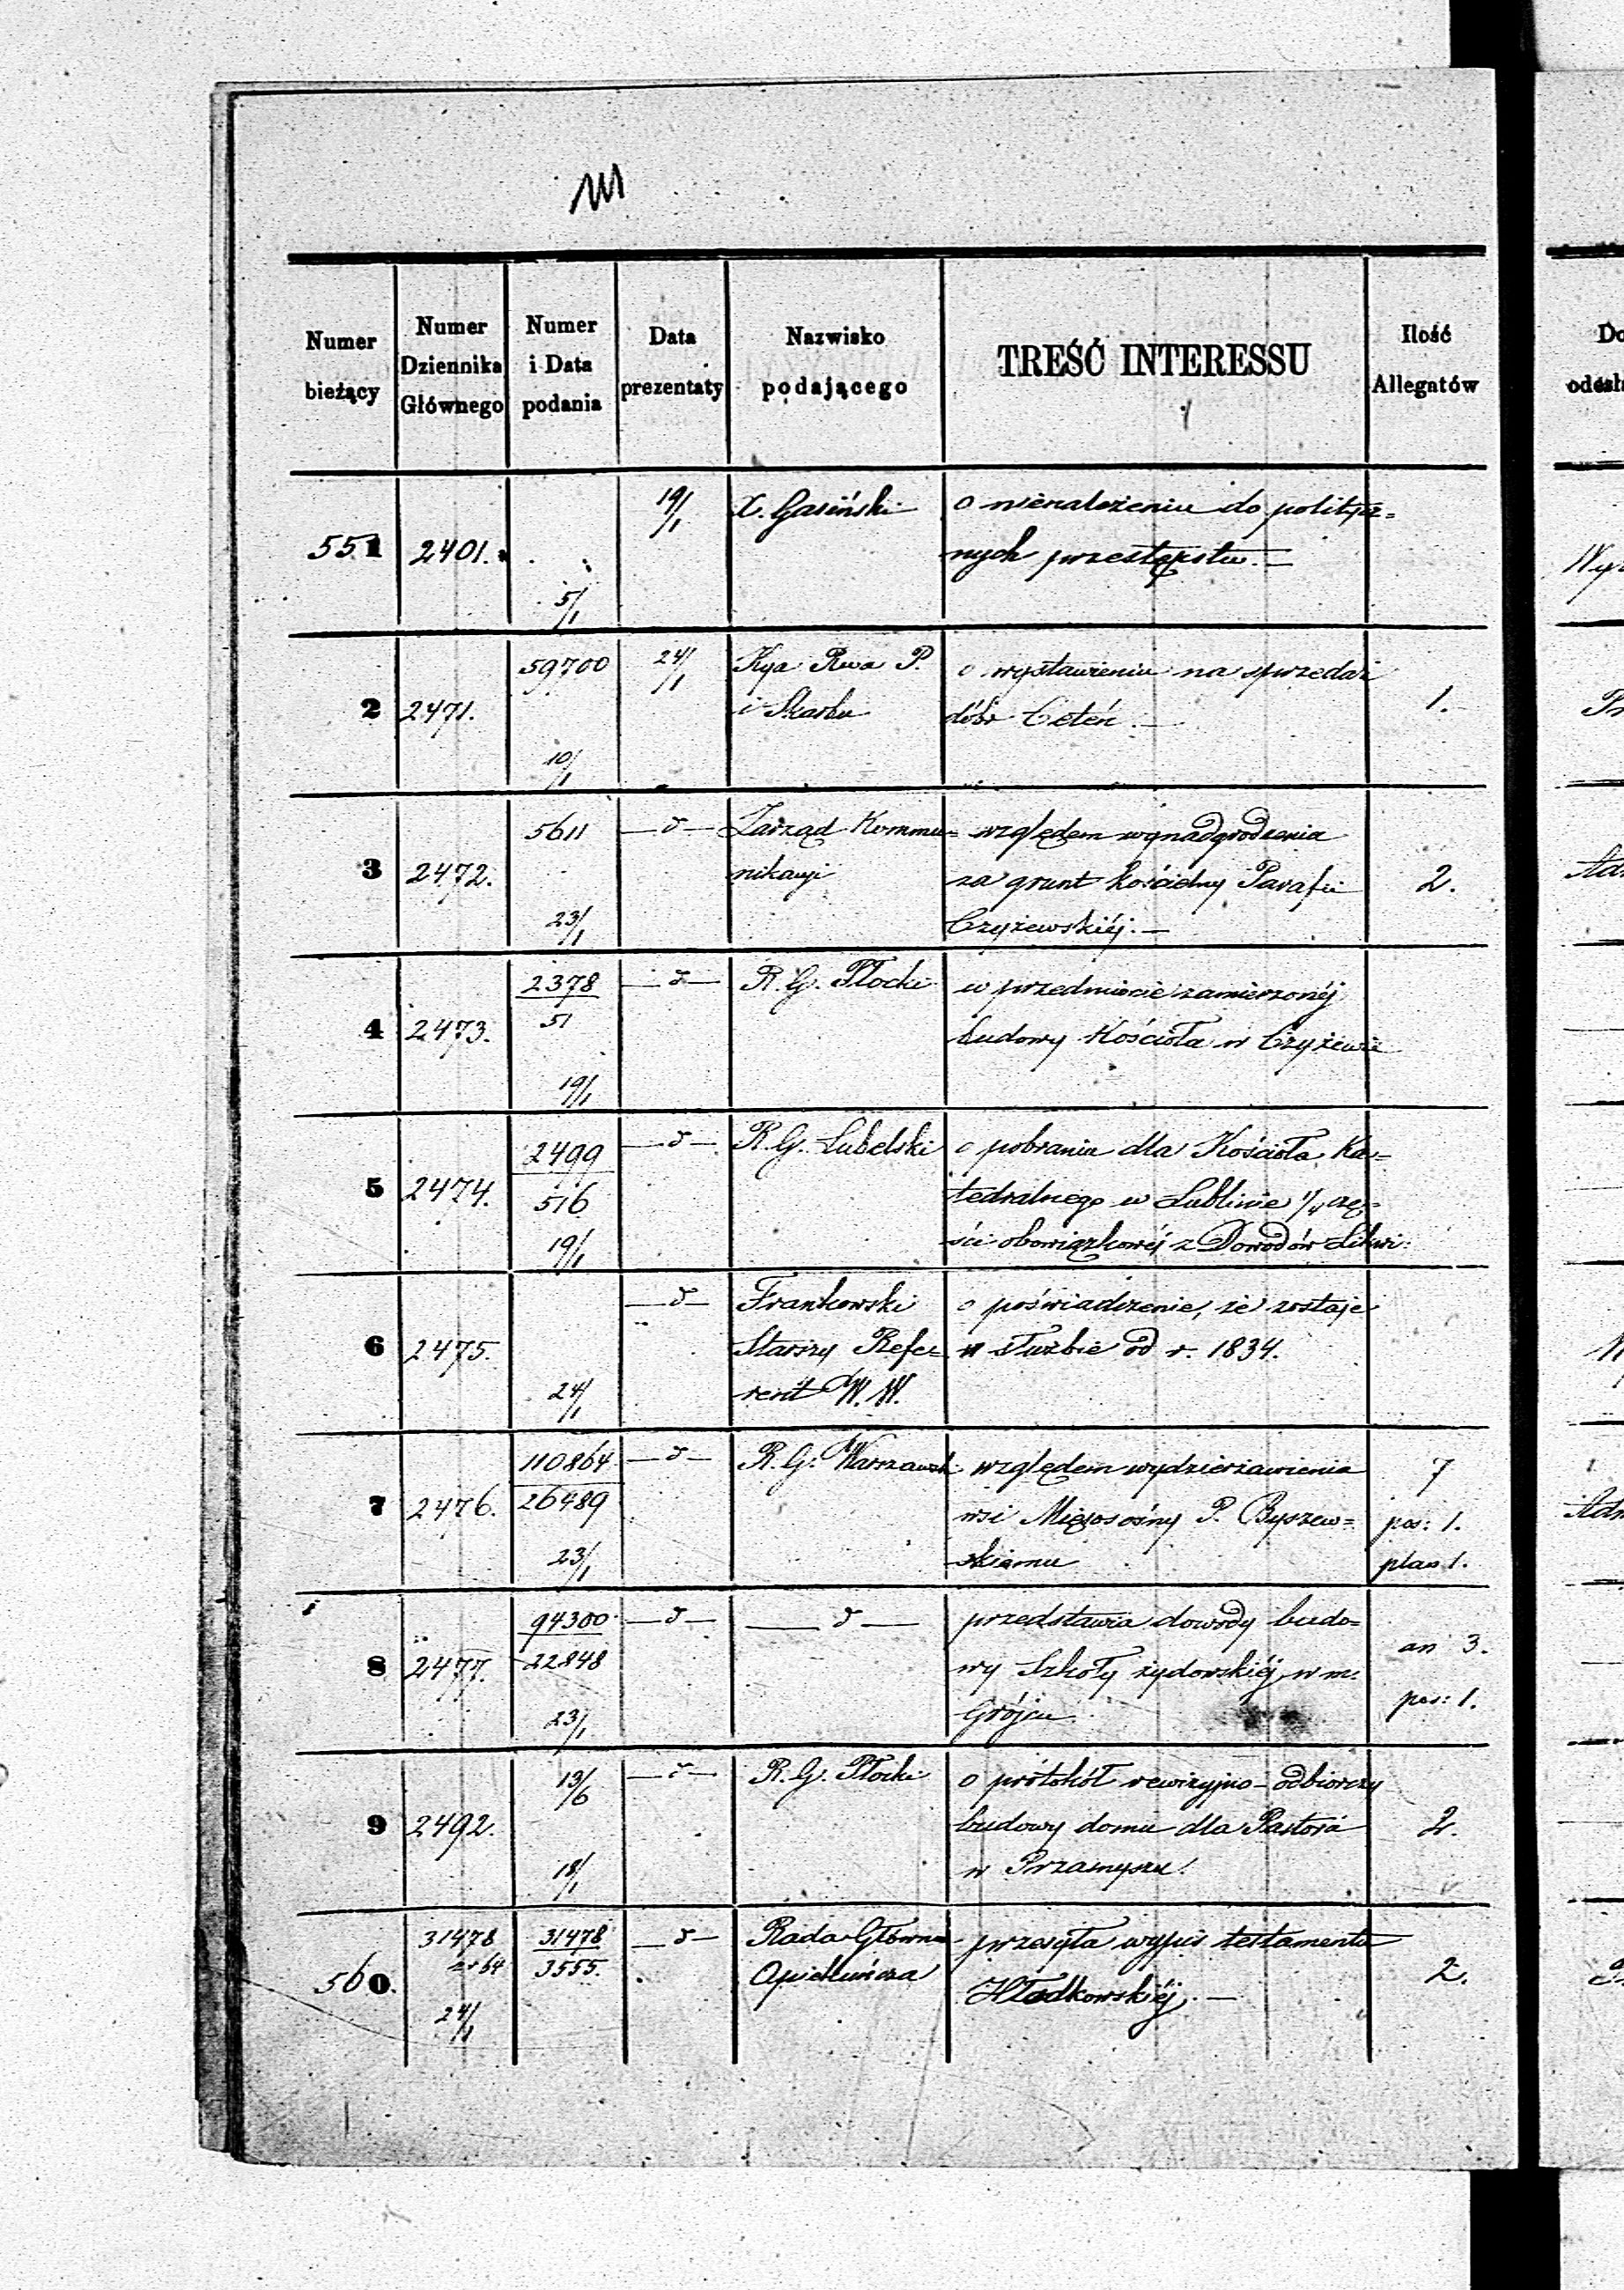 Numer bieżący
Numer Dziennika Głównego
Numer i Data podania
Data prezentaty
Nazwisko podającego
TREŚĆ INTERESSU
Ilość Allegatów
551 2401. 5/1 19/1 X. Gasiński o nienależeniu do politycz=
nych przestępstw.—
2 2471. 59700 10/1 24/1 Kya Rwa P. o wystawieniu na sprzedaż 1.
i Skarbu dóbr Celeń.—
3 2472. 5611 23/1 —d— Zarząd Kommu= względem wynadgrodzenia 2.
nikacyi za grunt kościelny Parafii
Czyżewskiéj.—
4 2473. 2378 51 19/1 —d— R. G. Płocki w przedmiocie zamierzonéj
budowy Kościoła w Czyżewie
5 2474. 2499 516 19/1 —d— R. G. Lubelski o pobraniu dla Kościoła Ka=
tedralnego w Lublinie 1/4 czę=
ści obowiązkowéj z Dowodów Likwi:
6 2475. 24/1 —d— Frankowski o poświadczenie, że zostaje
Starszy Refe= w służbie od r. 1834.
rent W. W.
7 2476. 110864 26489 23/1 —d— R. G. Warszawski względem wydzierżawienia 7
wsi Mięsośny P. Byszew= pos: 1.
skiemu plan 1.
8 2477. 94300 22848 23/1 —d— —d— przedstawia dowody budo= an 3.
wy Szkoły żydowskiéj w m. pos: 1.
Grójcu
9 2492. 13/6 18/1 —d— R. G. Płocki o prótokół rewizyjno-odbiorczy 2.
budowy domu dla Pastora
w Przasnyszu.
560. 31478 64 24/1 31478 3555. —d— Rada Główna przesyła wypis testamentu 2.
Opiekuńcza Hłodkowskiéj.—